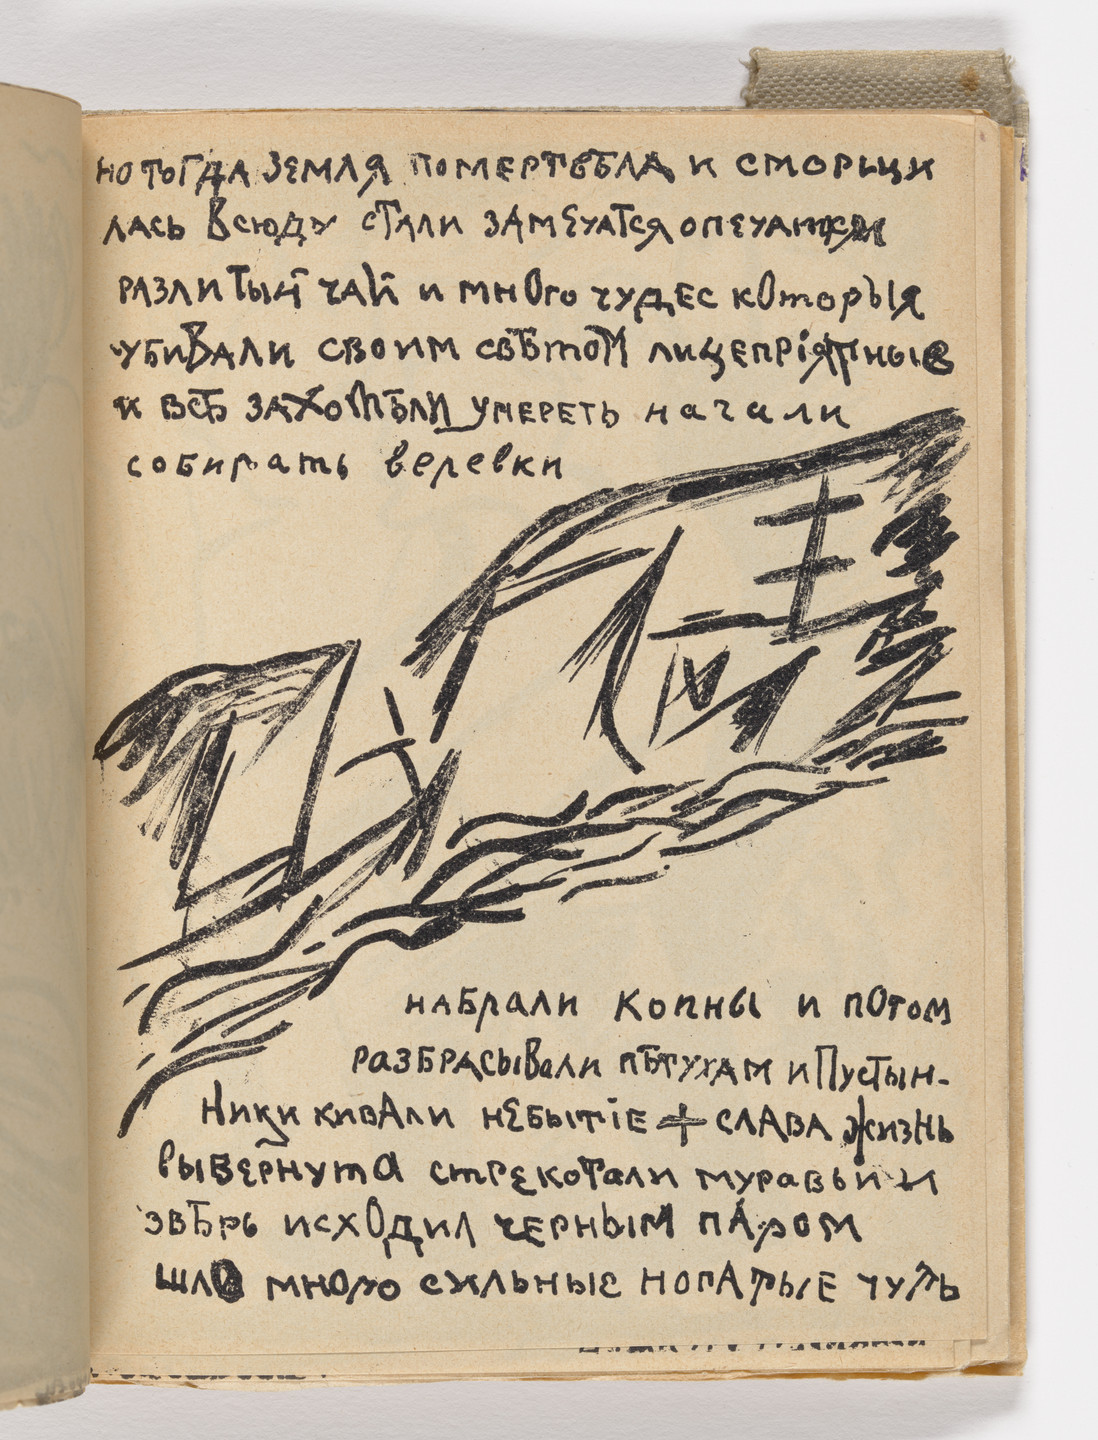 но тогда земля помертвѣла и сморщи
лась всюду стали замечатся опечатки
разлитый чай и много чудес которыя
убивали своим свѣтом лицепріятные
и всѣ захотѣли умереть начали
собирать веревки
набрали копны и потом
разбрасывали пѣтухам и пустын-
ники кивали небытіе + слава жизнь
вывернута стрекотали муравьи и
звѣрь исходил черным паром
шло много сильные ногатые чуть